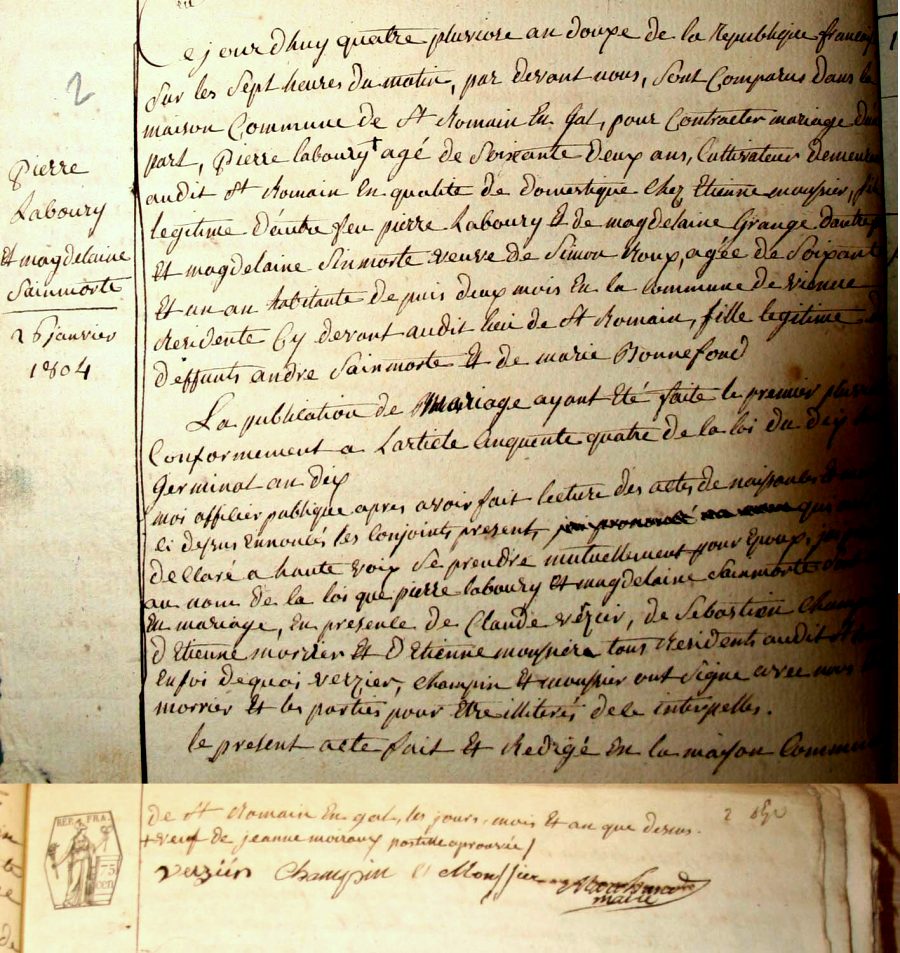 2
Pierre
Laboury
Et magdelaine
Sainmorte
26 janvier
1804
Cejourdhuy quatre pluviose an douze de la republique francai
Sur les Sept heures du matin, par devant nous, Sont Comparus dans la
maison Commune de St Romain En Gal, pour Contracter mariage d'u
part, Pierre laboury + agé de Soixante Deux ans, Cultivateur Demeur
audit St Romain En qualite de Domestique Chez Etienne moussier, fil
legitime d'autre feu pierre Laboury Et de magdelaine Grange D'autre p
Et magdelaine Sinmorte veuve de Simon Roux, agée de Soixant
Et un an habitante depuis deux mois En la Commune de vienne
Residente Cy devant audit lieu de St Romain, fille legitime d
deffunts andre Sainmorte Et de marie Bonnefond
La publication de Mariage ayant Eté faite le premier pluvi
Conformement a L'article Cinquente quatre de la loi du dix
Germinal an dix
moi officier publique apres avoir fait lecture des actes de naissances
Ci dessus Ennoncés les Conjoints present, qui
declaré a haute voix Se prendre mutuellement pour Epoux,
au nom de la loi que pierre laboury Et magdelaine Sainmorte
En mariage, En presence de Claude verzier, de Sebastien Champ
D'Etienne morrier Et D'Etienne moussier tous Residents audit St
Enfoi dequoi verzier, Champin Et moussier ont Signe avec nous
morrier Et les parties pour Etre illiterés dece interpelles.
le present acte fait Et Redigé En la maison Commun
REP. FRA.
75
cen.
de St Romain En gal, les jours, mois Et an que dessus.
+ veuf de jeanne moiroux postille aprouvée /
verzier Champin E Moussier
maire